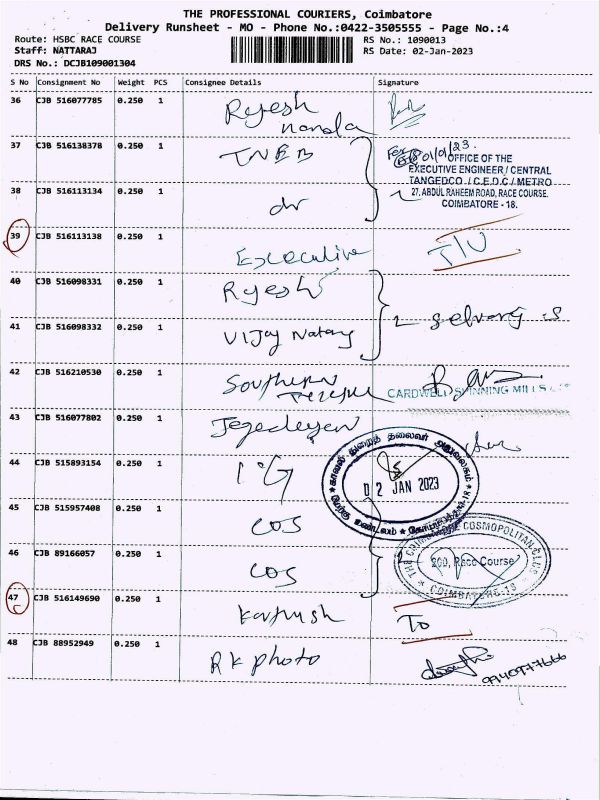 THE PROFESSIONAL COURIERS, Coimbatore
Delivery Runsheet - MO - Phone No.:0422-3505555 - Page No.:4
Route: HSBC RACE COURSE RS No.: 1090013
Staff: NATTARAJ RS Date: 02-Jan-2023
DRS No.: DCJB109001304
S No Consignment No Weight PCS Consignee Details Signature
36 CJB 516077785 0.250 1 Rajesh
nanda
37 CJB 516138378 0.250 1 TNEB
For 01/01/23.
OFFICE OF THE
EXECUTIVE ENGINEER / CENTRAL
TANGEDCO / C.E.D.C / METRO
27, ABDUL RAHEEM ROAD, RACE COURSE,
COIMBATORE - 18.
38 CJB 516113134 0.250 1 do
39 CJB 516113138 0.250 1 Executive
40 CJB 516098331 0.250 1 Rajesh
41 CJB 516098332 0.250 1 Vijay
2
42 CJB 516210530 0.250 1 Southern
CARDWELL SPINNING MILLS
43 CJB 516077802 0.250 1
44 CJB 515893154 0.250 1 IG
காவல் துறைத் தலைவர் அலுவலகம்
02 JAN 2023
மேற்கு மண்டலம்
45 CJB 515957408 0.250 1 cos
46 CJB 89166057 0.250 1 cos
COSMOPOLITAN CLUB
200, Race Course
COIMBATORE-18
47 CJB 516149690 0.250 1
48 CJB 88952949 0.250 1 RK photo